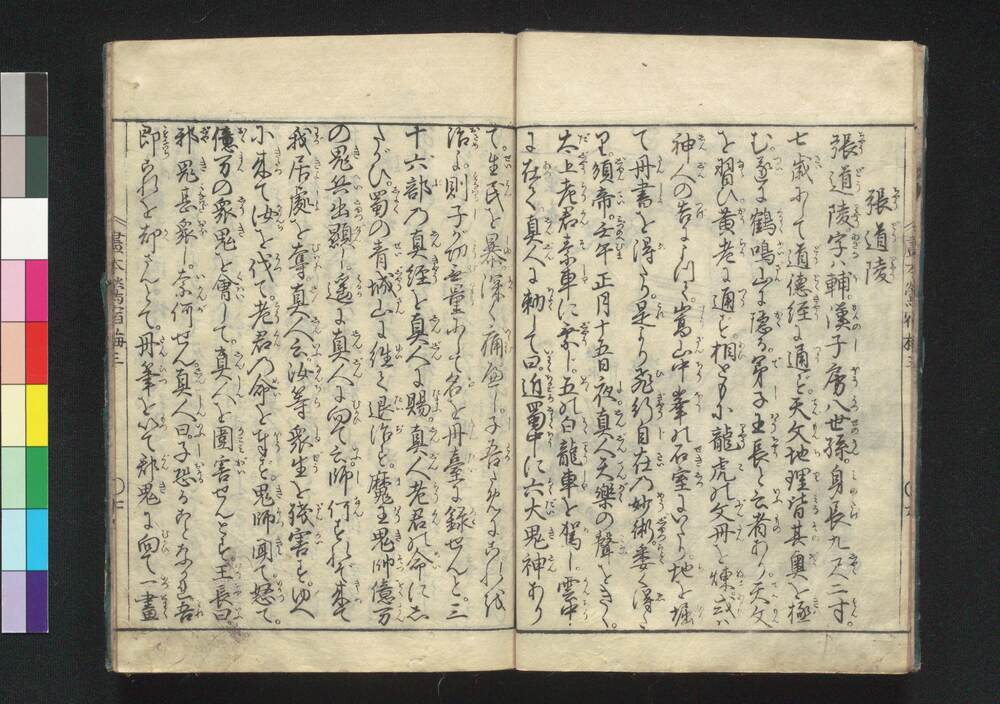 張道陵
張道陵字ハ輔漢子房八世孫身長九尺二寸
七歳にして道徳経に通ず天文地理皆其奥を極
む遂に鶴鳴山に隠る弟子王長と云者あり天文
を習ひ黄老に通ず相ともに龍虎の文丹を煉或ハ
神人の告によりて嵩山中峯の石室にいたり地を掘
て丹書を得たり是より飛行自在の妙術委く得た
り須帝壬午正月十五日夜真人天樂の聲をきく
太上老君来車に乗し五の白龍車を駕し雲中
に在く真人に勅して曰近蜀中に六大鬼神あり
て生民を暴深く痛む子吾ためにこれを
治よ則子が功無量にして名を丹臺に録せんと三
十六部の真経を真人に賜真人老君の命にし
たがひ蜀の青城山に往き退治す魔王鬼帥億万
の鬼兵出顕し遥に真人に向て云師何ぞ来て
我居處を奪真人云汝等衆生を残害すゆへ
に来て汝を伐て老君の命を奉ず鬼師聞て怒て
億万の衆鬼を會して真人を圍害せんとす王長曰
邪鬼甚衆し奈何せん真人曰子恐るゝことなかれ吾
即これを却さんとて丹筆をいて衆鬼に向て一畫